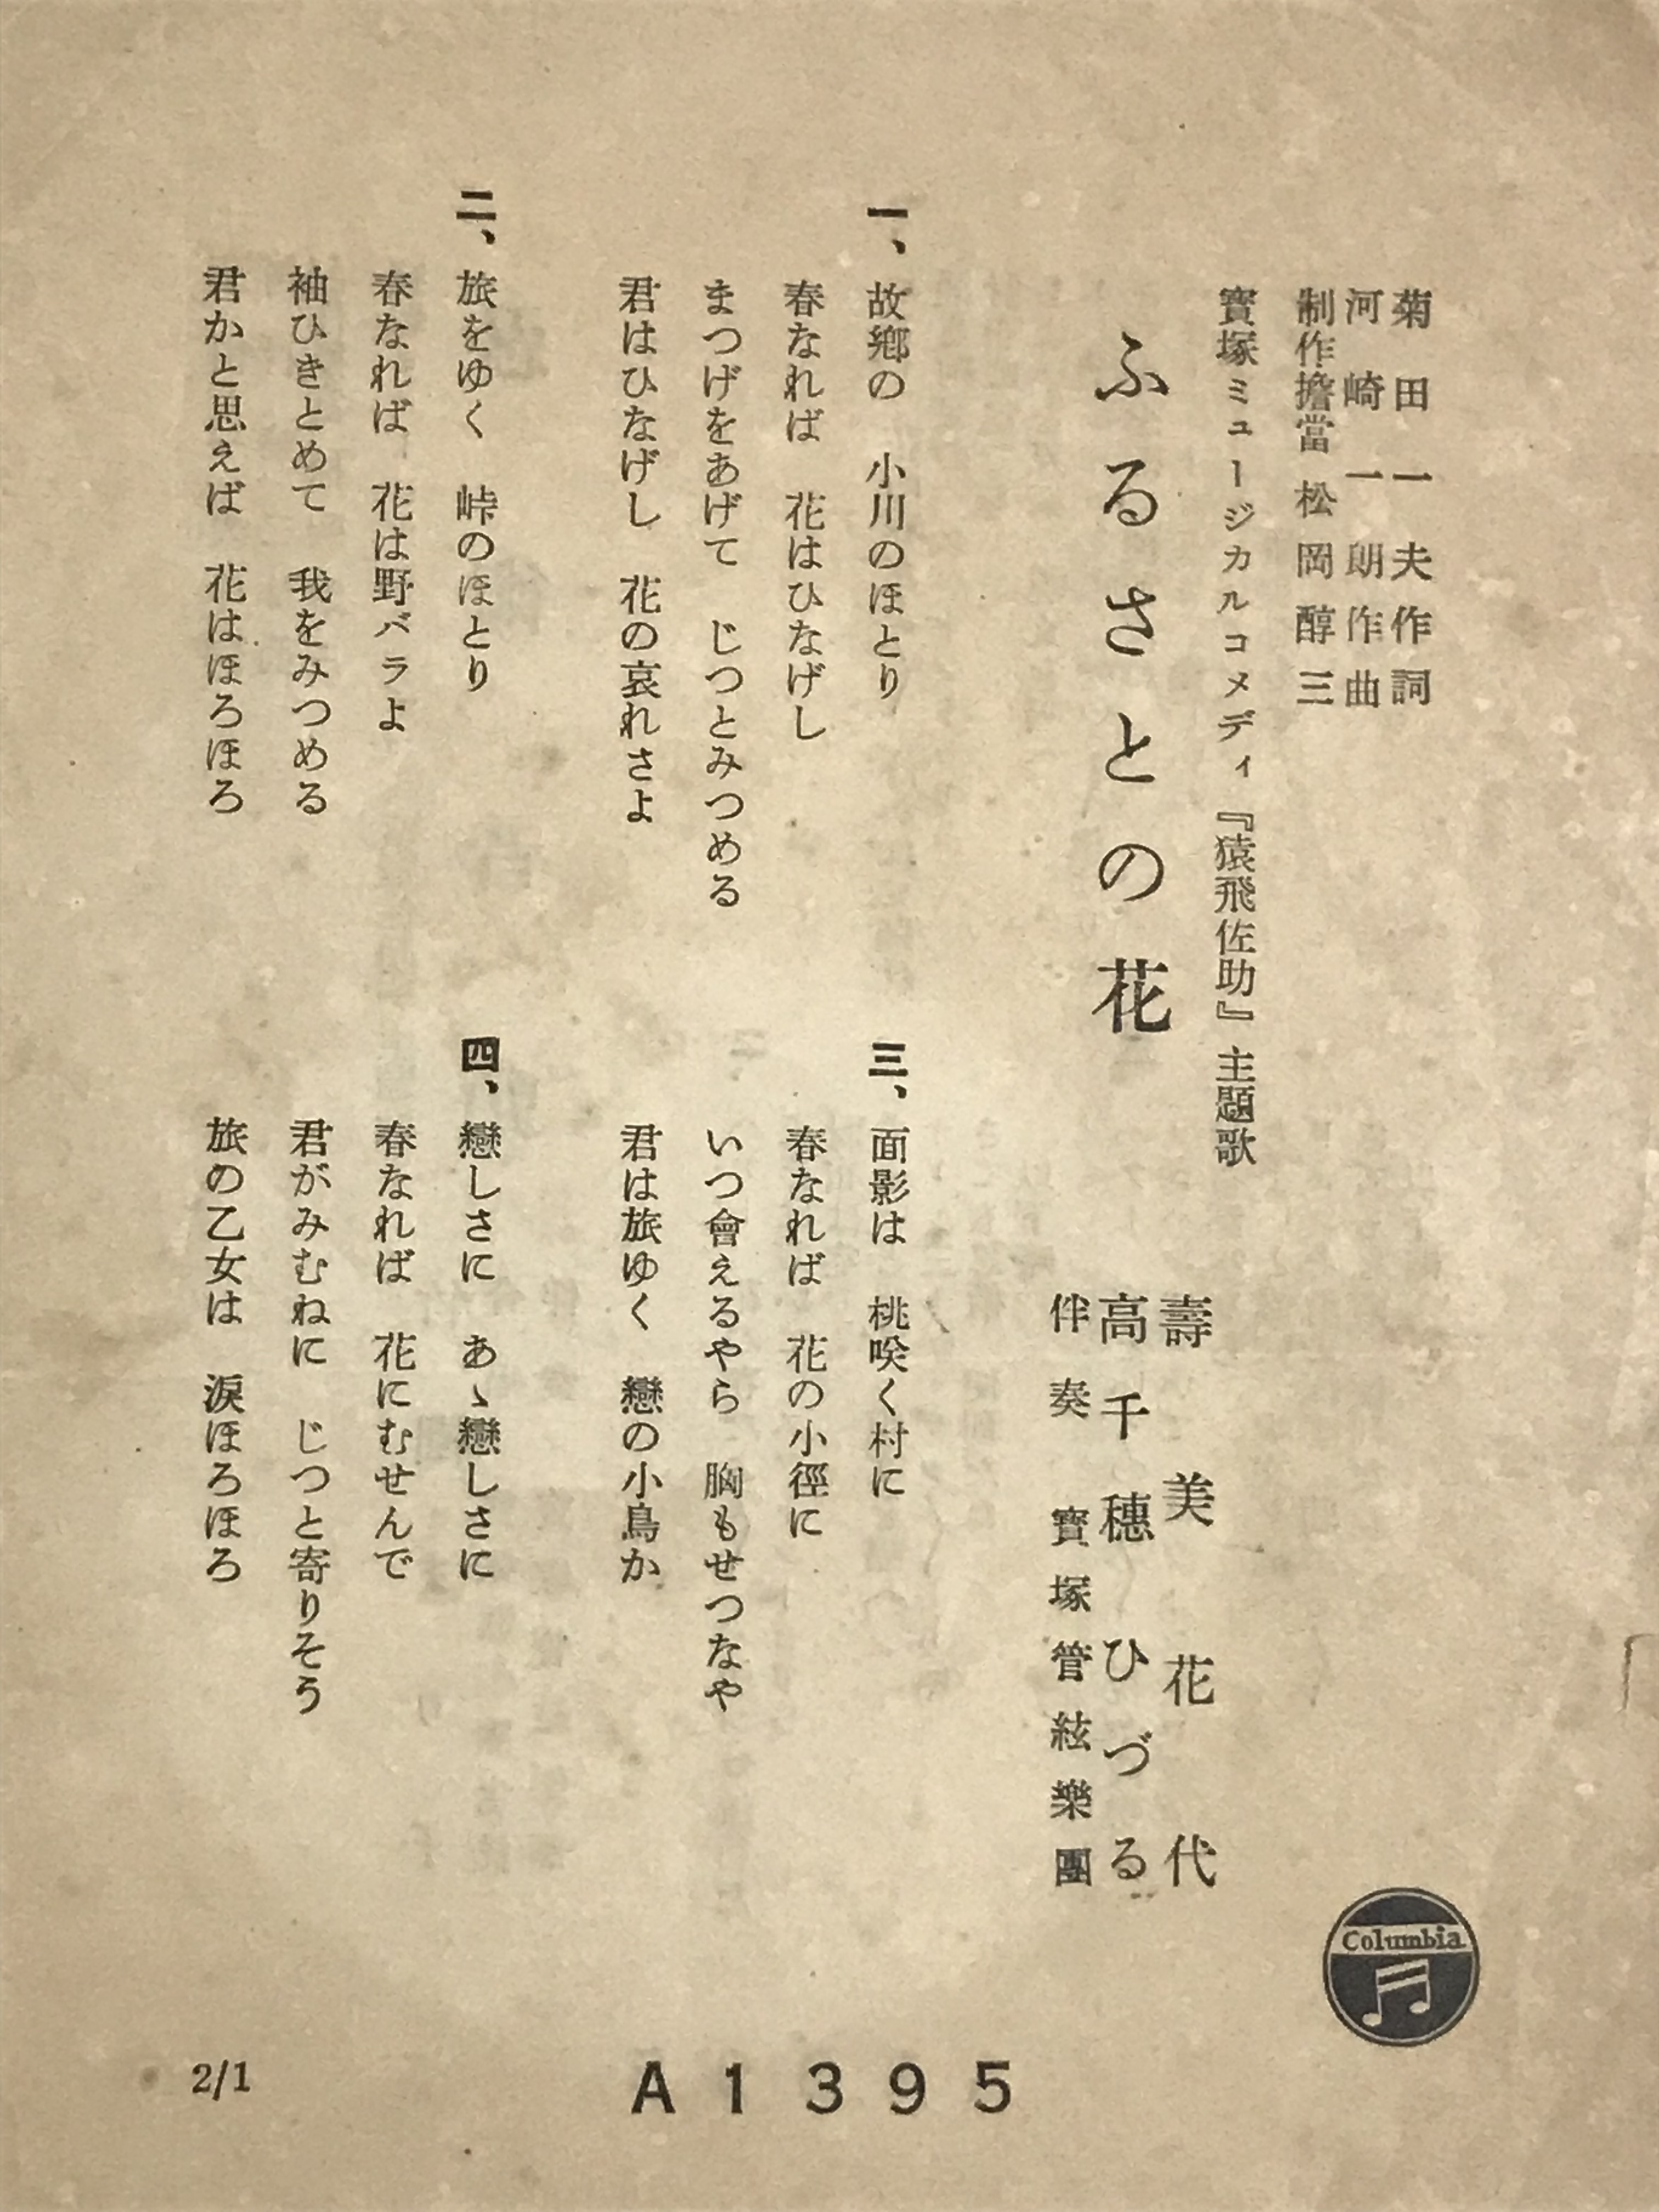 菊田一夫作詞
河崎一朗作曲
制作擔當 松岡醇三
寶塚ミュージカルコメディ『猿飛佐助』主題歌
ふるさとの花
壽美花代
高千穗ひづる
伴奏 寶塚管絃樂團
一、故鄕の 小川のほとり
春なれば 花はひなげし
まつげをあげて じつとみつめる
君はひなげし 花の哀れさよ
二、旅をゆく 峠のほとり
春なれば 花は野バラよ
袖ひきとめて 我をみつめる
君かと思えば 花はほろほろ
三、面影は 桃咲く村に
春なれば 花の小徑に
いつ會えるやら 胸もせつなや
君は旅ゆく 戀の小鳥か
四、戀しさに あゝ戀しさに
春なれば 花にむせんで
君がみむねに じつと寄りそう
旅の乙女は 淚ほろほろ
Columbia
A1395
2/1